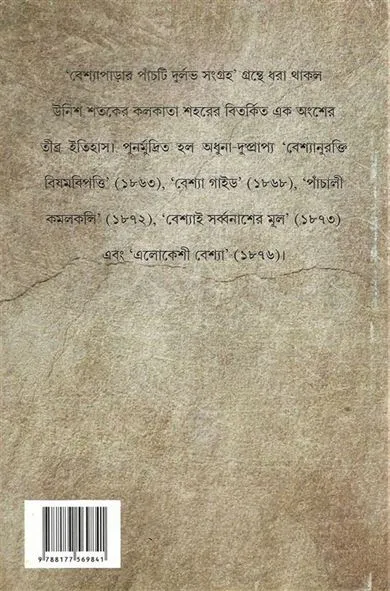 ‘বেশ্যাপাড়ার পাঁচটি দুর্লভ সংগ্রহ’ গ্রন্থে ধরা থাকল
উনিশ শতকের কলকাতা শহরের বিতর্কিত এক অংশের
তীব্র ইতিহাস। পুনর্মুদ্রিত হল অধুনা-দুষ্প্রাপ্য ‘বেশ্যানুরক্তি
বিষমবিপত্তি’ (১৮৬৩), ‘বেশ্যা গাইড’ (১৮৬৮), ‘পাঁচালী
কমলকলি’ (১৮৭২), ‘বেশ্যাই সর্ব্বনাশের মূল’ (১৮৭৩)
এবং ‘এলোকেশী বেশ্যা’ (১৮৭৬)।
9 788177 569841